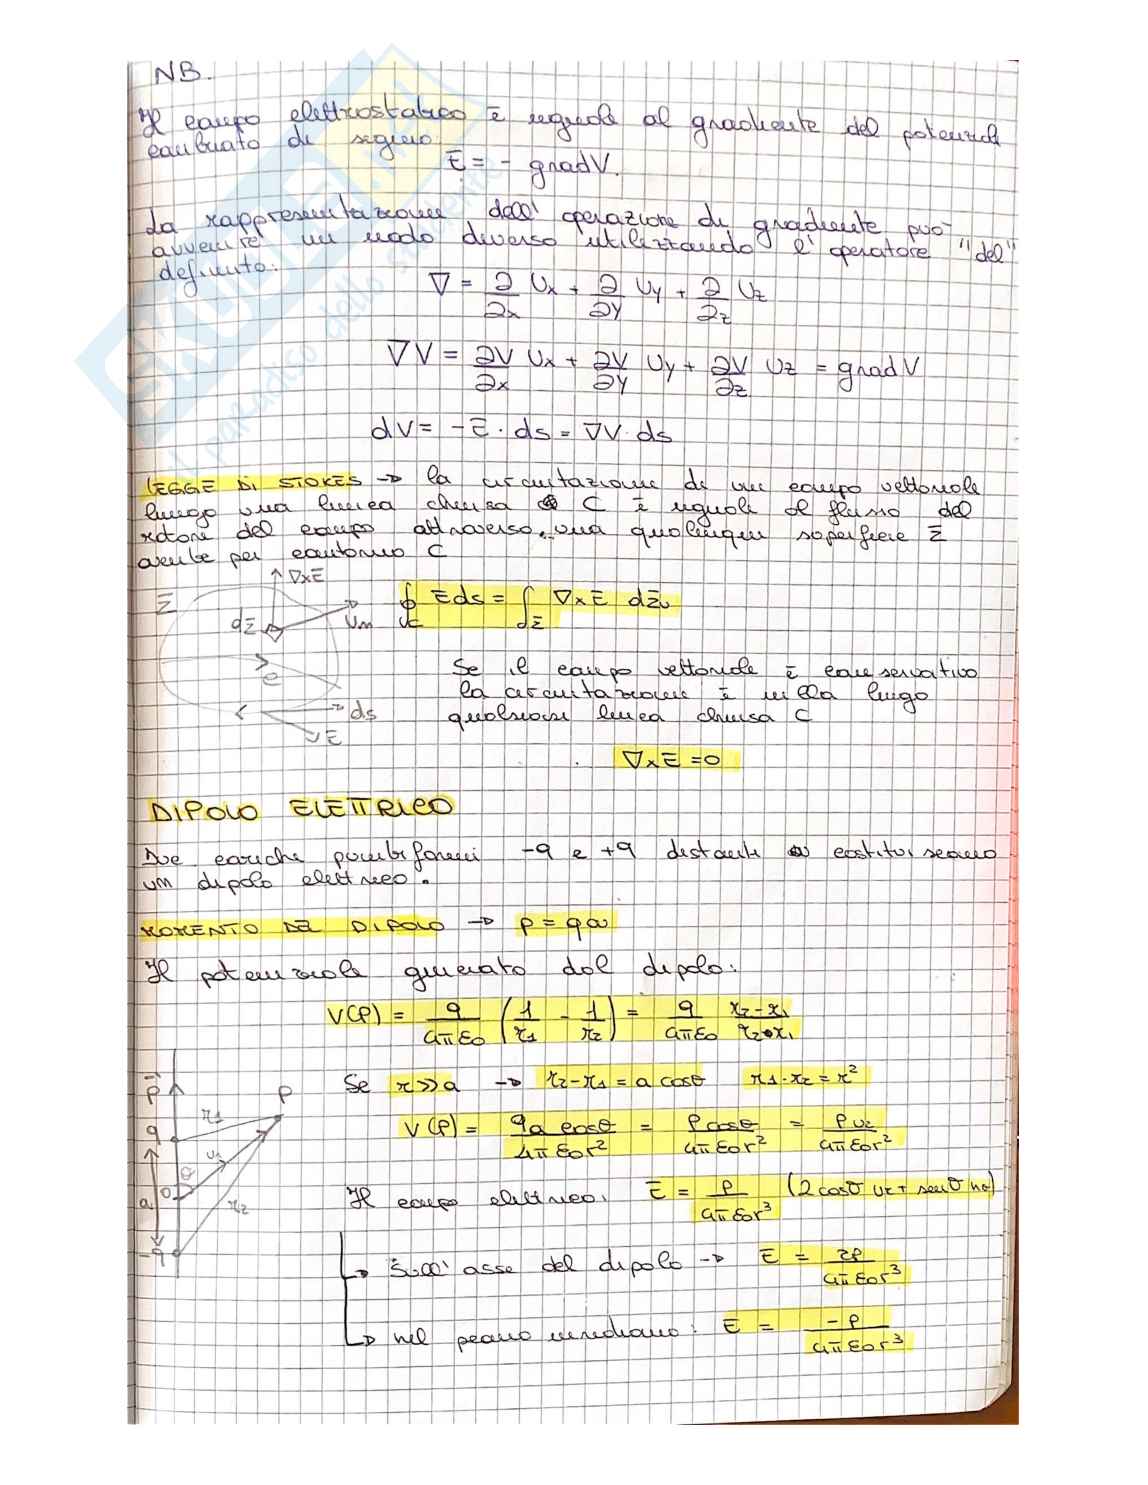 NB.
Il campo elettrostatico è uguale al gradiente del potenziale
cambiato di segno:
E = - grad V.
La rappresentazione dell' operazione di gradiente può
avvenire in modo diverso utilizzando l' operatore "del"
definito:
∇ = ∂/∂x Ux + ∂/∂y Uy + ∂/∂z Uz
∇V = ∂V/∂x Ux + ∂V/∂y Uy + ∂V/∂z Uz = grad V
dV = -E · ds = ∇V · ds
LEGGE DI STOKES → la circuitazione di un campo vettoriale
lungo una linea chiusa C è uguale al flusso del
rotore del campo attraverso una qualunque superficie Σ
avente per contorno C
∇×E
Σ
dΣ
Un
C
ds
E
∮c E ds = ∫Σ ∇×E dΣ Un
Se il campo vettoriale è conservativo
la circuitazione è nulla lungo
qualsiasi linea chiusa C
∇×E = 0
DIPOLO ELETTRICO
Due cariche puntiformi -q e +q distanti a costituiscono
un dipolo elettrico.
MOMENTO DEL DIPOLO → p = qa
Il potenziale generato dal dipolo:
V(P) = q/4πε0 (1/r1 - 1/r2) = q/4πε0 r2-r1/r2·r1
Se r≫a → r2-r1 = a cosθ r1·r2 = r²
V(P) = qa cosθ/4πε0r² = p cosθ/4πε0r² = p Ur/4πε0r²
p
P
r1
q
U1
θ
a
O
r2
-q
Il campo elettrico: E = p/4πε0r³ (2cosθ Ur + senθ Uθ)
↳ Sull' asse del dipolo → E = 2p/4πε0r³
↳ nel piano mediano: E = -p/4πε0r³
SKUOLA.net
il paradiso dello studente